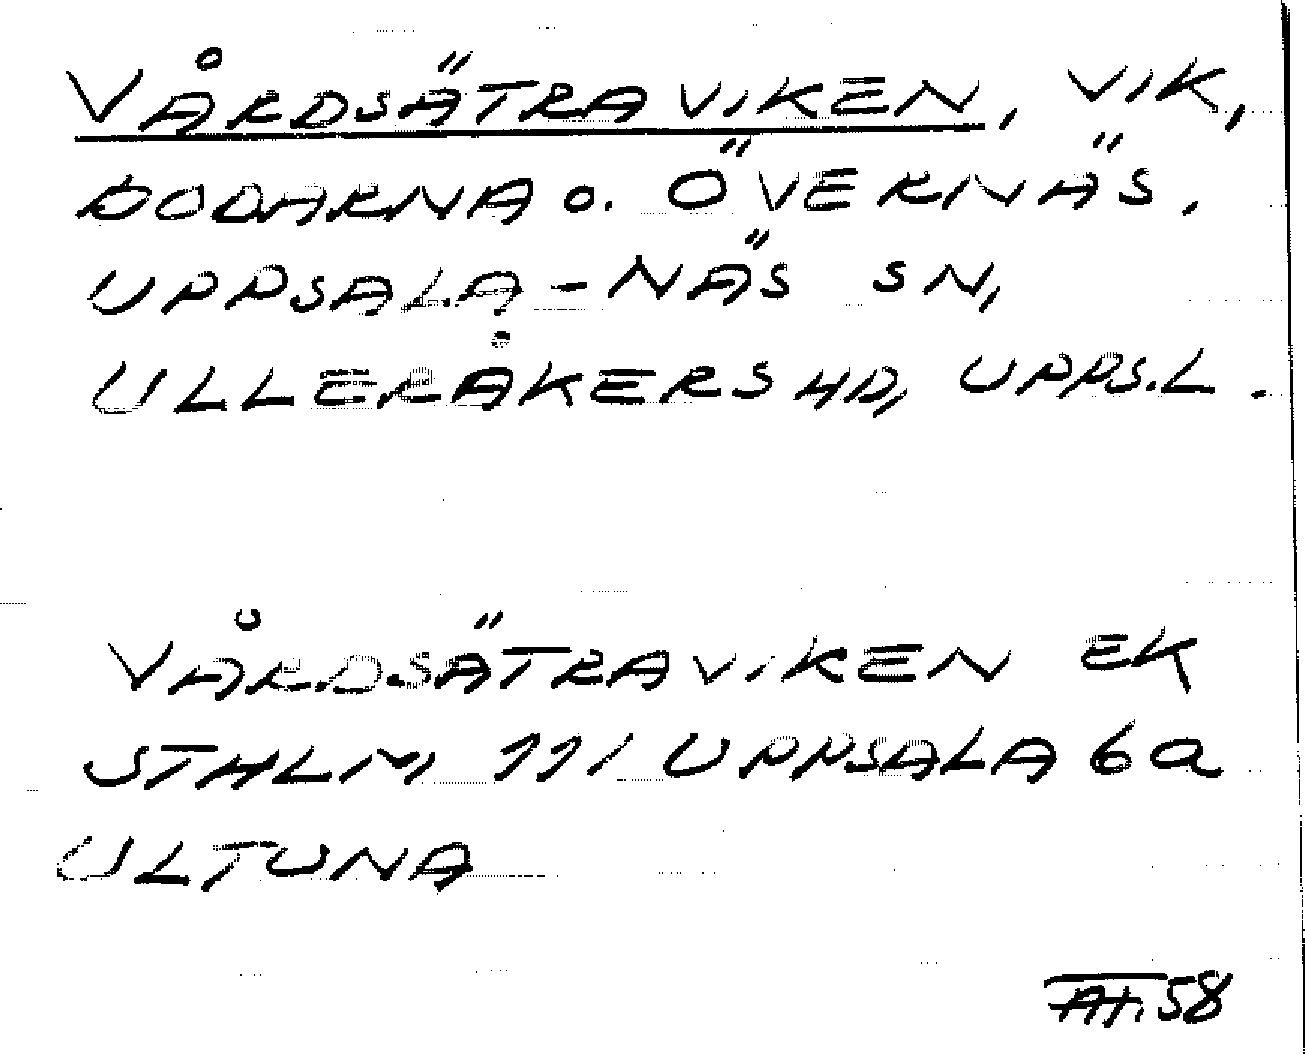 VÅRDSÄTRAVIKEN, VIK,
BODARNA o. ÖVERNÄS,
UPPSALA-NÄS SN,
ULLERÅKERS HD, UPPS.L.
VÅRDSÄTRAVIKEN EK
STHLM 111 UPPSALA 6a
ULTUNA
58